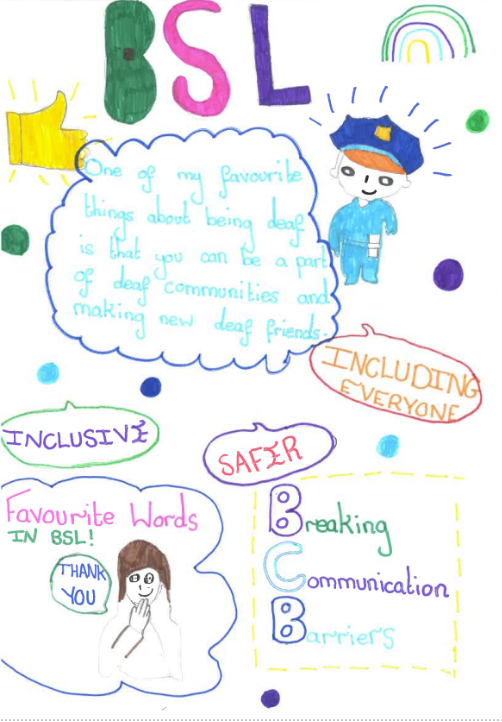 BSL
One of my favourite
things about being deaf
is that you can be a part
of deaf communities and
making new deaf friends.
INCLUDING
EVERYONE
INCLUSIVE
SAFER
Favourite Words
IN BSL!
THANK
YOU
Breaking
Communication
Barriers